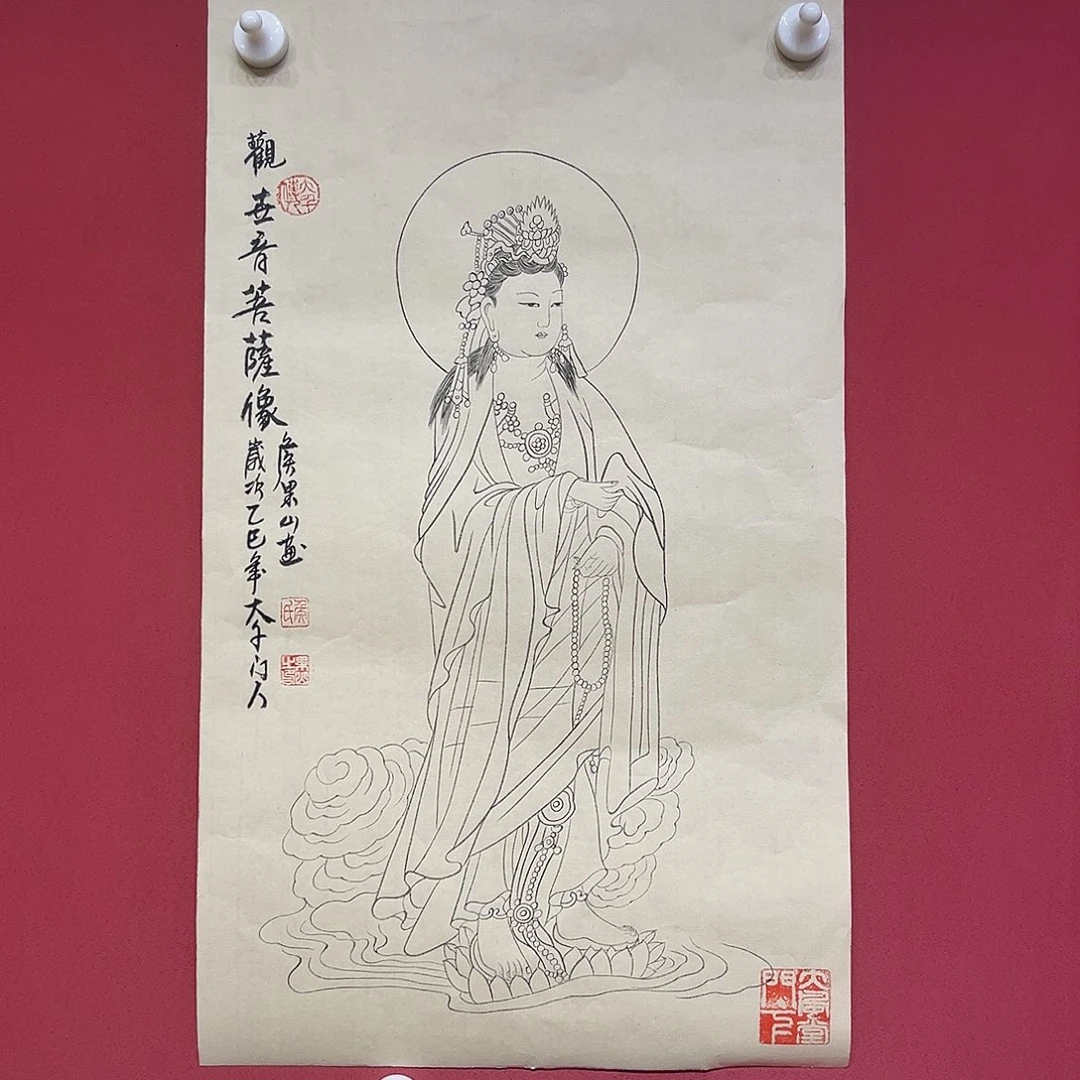 觀世音菩薩像
歲次乙巳年大千门人
侯果山画
大風堂
門下